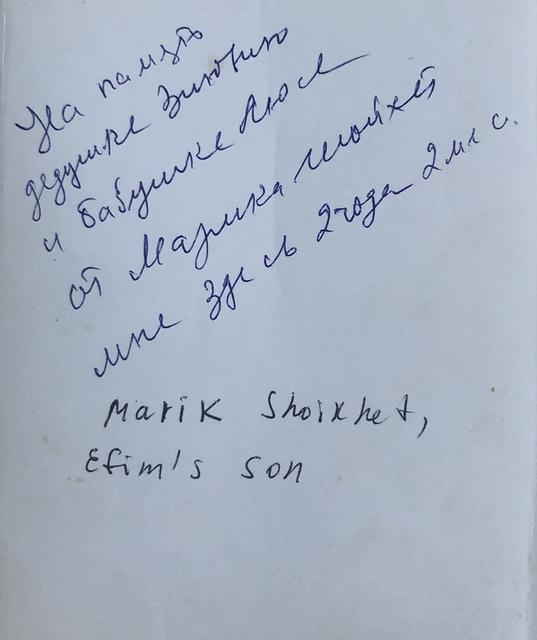 На память
дедушке Зиновию
и бабушке Люсе
от Марика Шойхет
мне здесь 2 года 2 мес.
Marik Shoikhet,
Efim's son